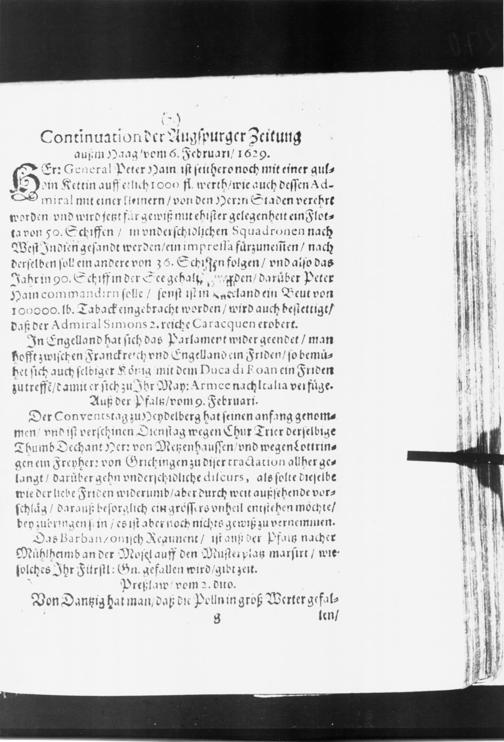 (·)
Continuation der Augspurger Zeitung
außm Haag/vom 6. Februari/1629.
HEr: General Peter Hain ist seithero noch mit einer gul-
din Kettin auff etlich 1000 fl. werth/wie auch dessen Ad-
miral mit einer kleinern/von den Herrn Staden verehrt
worden vnd wird jetzt für gewiß mit ehister gelegenheit ein Flot-
ta von 50. Schiffen/in vnderschidlichen Squadronen nach
West Indien gesandt werden/ein impressa fürzunemen/nach
derselben soll ein andere von 36. Schiffen folgen/vnd also das
Jahr in 90. Schiff in der See gehalten werden/darüber Peter
Hain commandirn solle/sonst ist in Seeland ein Beut von
100000. lb. Taback eingebracht worden/wird auch bestettigt/
daß der Admiral Simons 2. reiche Caracquen erobert.
In Engelland hat sich das Parlament wider geendet/man
hofft zwischen Franckreich vnd Engelland ein Friden/so bemü-
het sich auch selbiger König mit dem Duca di Roan ein Friden
zutreffē/damit er sich zu Ihr May: Armee nach Italia verfüge.
Auß der Pfaltz/vom 9. Februari.
Der Conventstag zu Heydelberg hat seinen anfang genom-
men/vnd ist verschinen Dienstag wegen Chur Trier derselbige
Thumb Dechant Her: von Metzenhausen/vnd wegen Lottrin-
gen ein Freyher: von Crichingen zu diser tractation allher ge-
langt/darüber gehn vnderschidliche discurs, als solte dieselbe
wie der liebe Friden widerumb/aber durch weit außsehende vor-
schläg/darauß besorglich ein grössers vnheil entstehen möchte/
bey zubringen sein/es ist aber noch nichts gewiß zu vernemmen.
Das Barbanzonisch Regiment/ist auß der Pfaltz nacher
Mühlheimb an der Mosel auff den Musterplatz marsirt/wie
solches Ihr Fürstl: Gn. gefallen wird/gibt zeit.
Preßlaw/vom 2. dito.
Von Dantzig hat man/daß die Polln in groß Werter gefal-
g len/